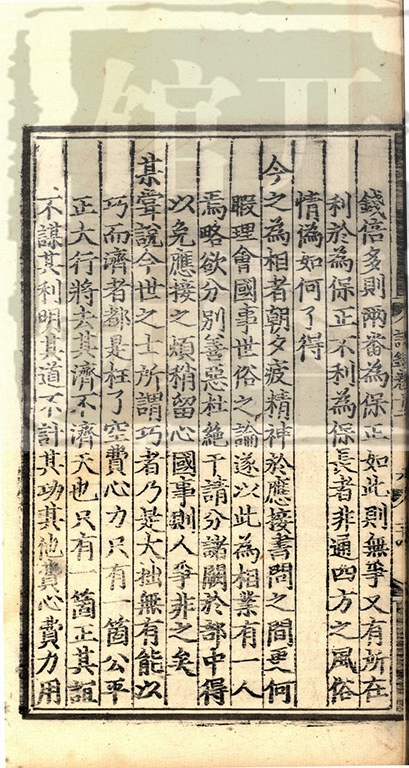 錢倍多則兩番為保正如此則無爭又有所在
利於為保正不利為保長者非通四方之風俗
情偽如何了得
今之為相者朝夕疲精神於應接書問之間更何
暇理會國事世俗之論遂以此為相業有一人
焉略欲分別善惡杜絶干請分諸闕於部中得
以免應接之煩稍留心國事則人爭非之矣
某甞說今世之士所謂巧者乃是大拙無有能以
巧而濟者都是枉了空費心力只有一箇公平
正大行將去其濟不濟天也只有一箇正其誼
不謀其利明其道不計其功其他費心費力用